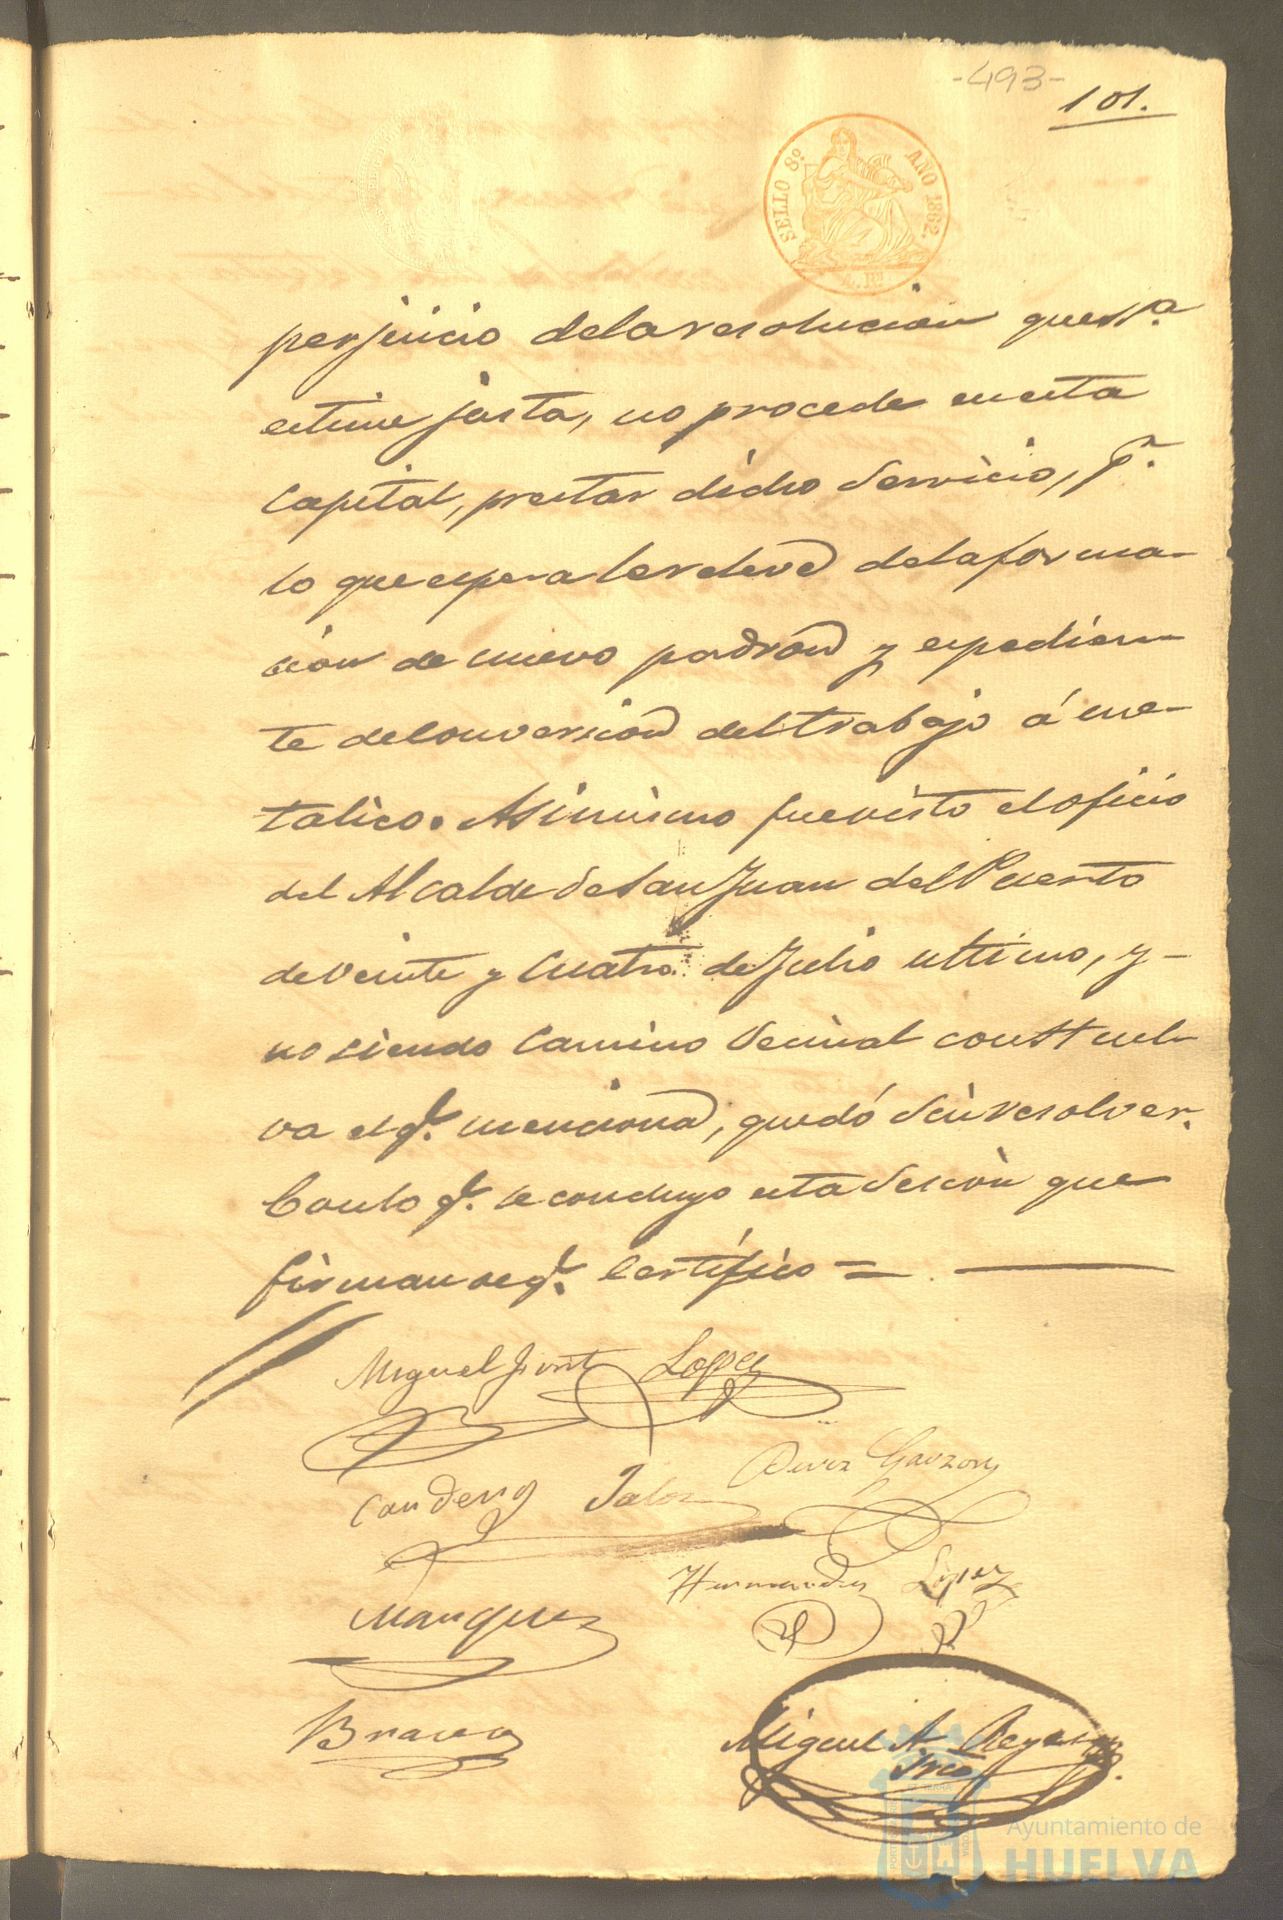 -493-
101.
SELLO 8º AÑO 1862.
perjuicio dela resolucion que S.S.ª
estime justa, no procede en esta
Capital, prestar dicho Servicio, pr.
lo que espera le releve dela forma-
ción de nuevo padron y espedien-
te de Conversion del trabajo á me-
tálico. Asimismo fue visto el oficio
del Alcalde de San Juan del Puerto
de veinte y Cuatro de Julio ultimo, y-
no siendo Camino Vecinal
va el q.e menciona, quedó Sin resolver.
Con lo q.e se concluyo esta Sesion que
firman de q.e Certifico =
Miguel López
Candeno
Perez Garzon
Marquez
Hernandez López
Bravo
Miguel A. Reyes
Srio
Ayuntamiento de
HUELVA